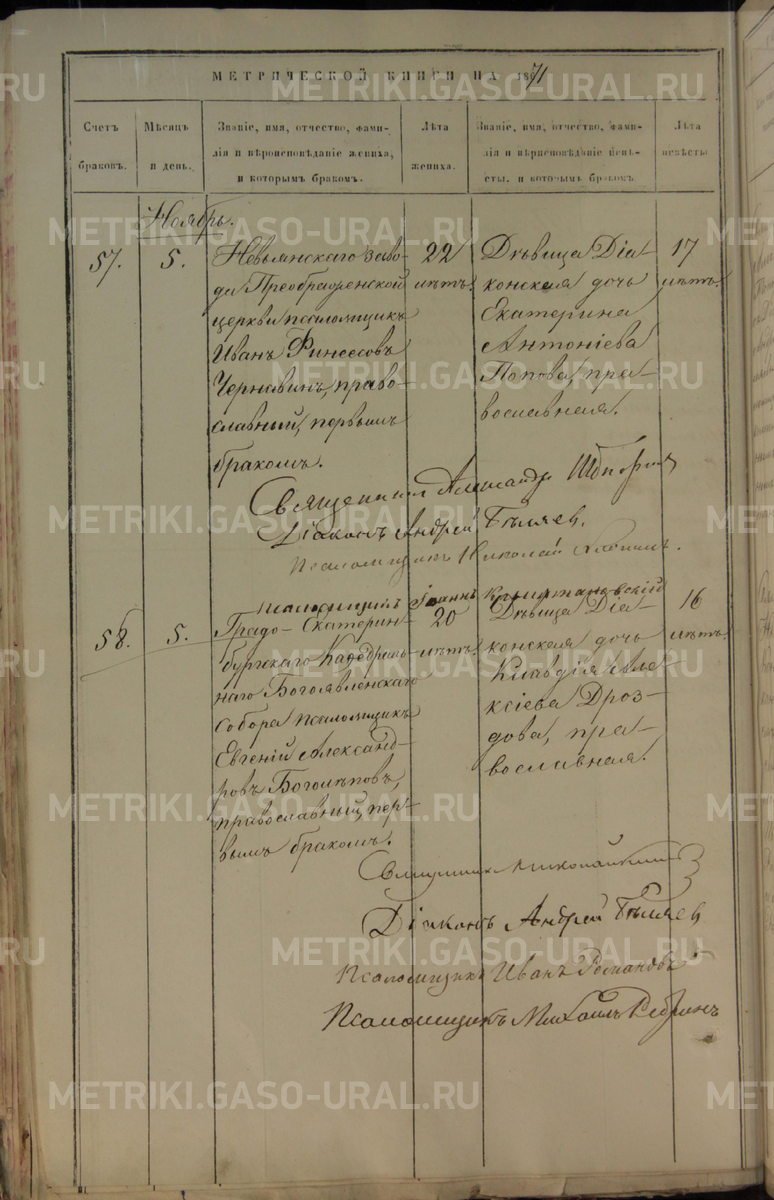 МЕТРИЧЕСКОЙ КНИГИ НА 1871
Счетъ
браковъ.
Мѣсяцъ
и день.
Званіе, имя, отчество, фами-
лія и вѣроисповѣданіе жениха,
и которымъ бракомъ.
Лѣта
жениха.
Званіе, имя, отчество, фами-
лія и вѣроисповѣданіе невѣ-
сты, и которымъ бракомъ
Лѣта
невѣсты
Ноябрь.
57.
5.
Невьянскаго заво-
да Преображенской
церкви псаломщикъ
Иванъ Финеесовъ
Чернавинъ, право-
славный, первымъ
бракомъ.
22
лѣтъ.
Дѣвица Діа-
конская дочь
Екатерина
Антоніева
Попова, пра-
вославная.
17
лѣтъ.
Священникъ Александръ
Діаконъ Андрей Бѣляев.
Псаломщикъ Николай
псаломщикъ Іоаннъ
58.
5.
Градо-Екатерин-
бургскаго Кафедраль-
наго Богоявленскаго
Собора псаломщикъ
Евгеній Александ-
ровъ Боголѣповъ,
православный, пер-
вымъ бракомъ.
20
лѣтъ.
Дѣвица Діа-
конская дочь
Клавдія Але-
ксіева Дроз-
дова, пра-
вославная.
16
лѣтъ.
Священник
Діаконъ Андрей Бѣляев
Псаломщикъ Иванъ Романовъ
Псаломщикъ Михаилъ
METRIKI.GASO-URAL.RU